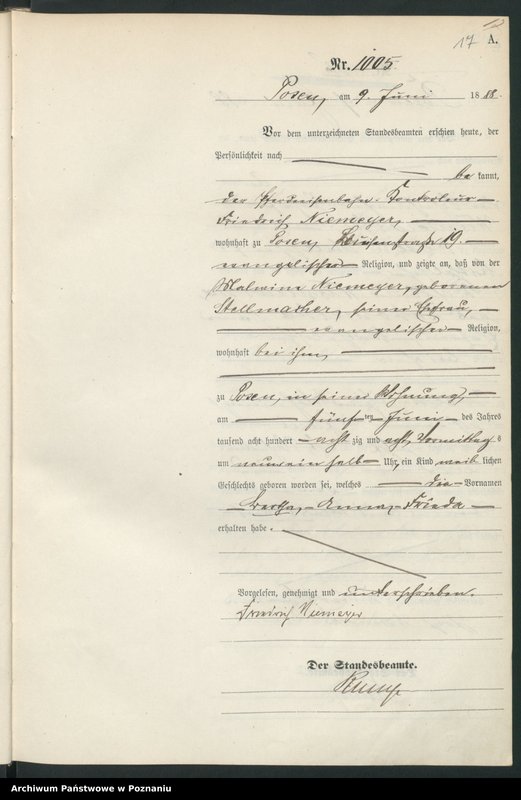 17 A.
Nr. 1005.
Posen, am 9. Juni 18 88.
Vor dem unterzeichneten Standesbeamten erschien heute, der
Persönlichkeit nach
be kannt,
der Pferdeeisenbahn-Kontroleur
Friedrich Niemeyer,
wohnhaft zu Posen, 19.
evangelischer Religion, und zeigte an, daß von der
Malwine Niemeyer, geborenen
Stellmacher, seiner Ehefrau,
evangelischer Religion,
wohnhaft bei ihm,
zu Posen, in seiner Wohnung,
am fünf ten Juni des Jahres
tausend acht hundert acht zig und acht, Vormittags
um neuneinhalb Uhr, ein Kind weib lichen
Geschlechts geboren worden sei, welches die Vornamen
Bertha, Anna, Frieda
erhalten habe.
Vorgelesen, genehmigt und unterschrieben.
Friedrich Niemeyer
Der Standesbeamte.
Archiwum Państwowe w Poznaniu